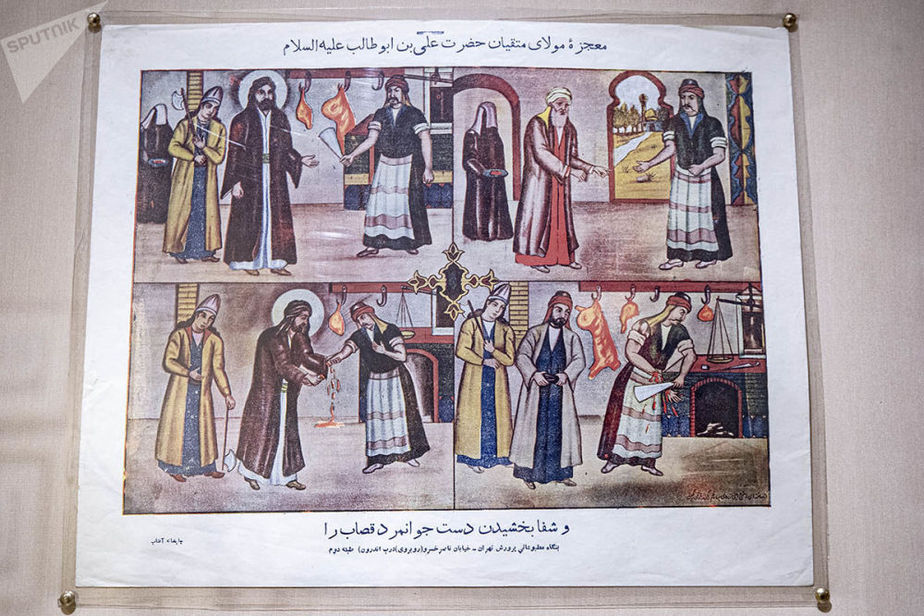 SPUTNIK
معجزهٔ مولای متقیان حضرت علی بن ابوطالب علیه السلام
و شفا بخشیدن دست جوانمرد قصاب را
چاپخانه آفتاب
بنگاه مطبوعاتی پرورش تهران - خیابان ناصرخسرو (روبروی درب اندرون) طبقه دوم